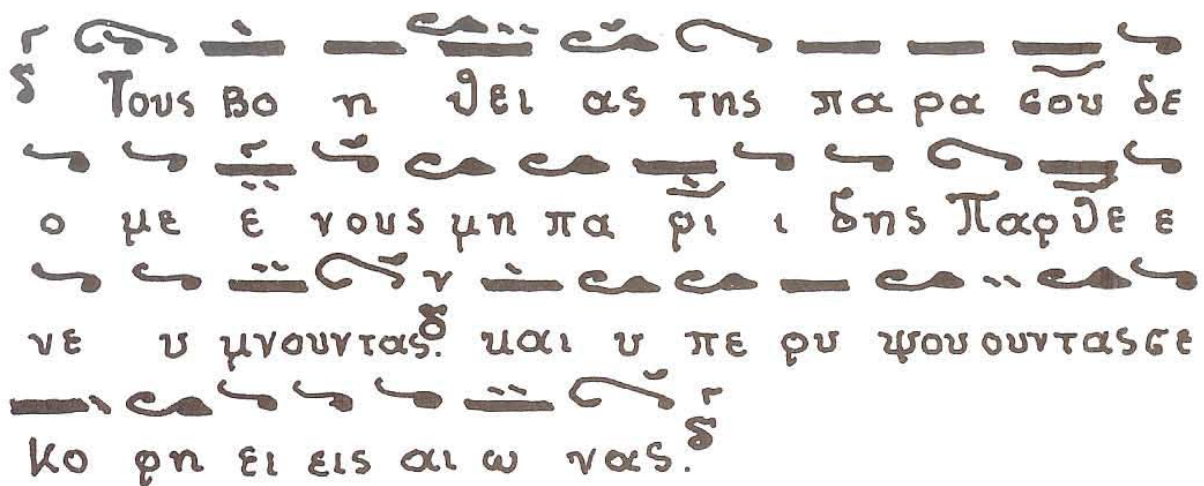 δ Τους βο η θει ας της πα ρα σου δε
ο με ε νους μη πα ρι ι δης Παρθε ε
νε υ μνουντας. δ και υ πε ρυ ψου ουντας σε
Κο ρη ει εις αι ω νας. δ